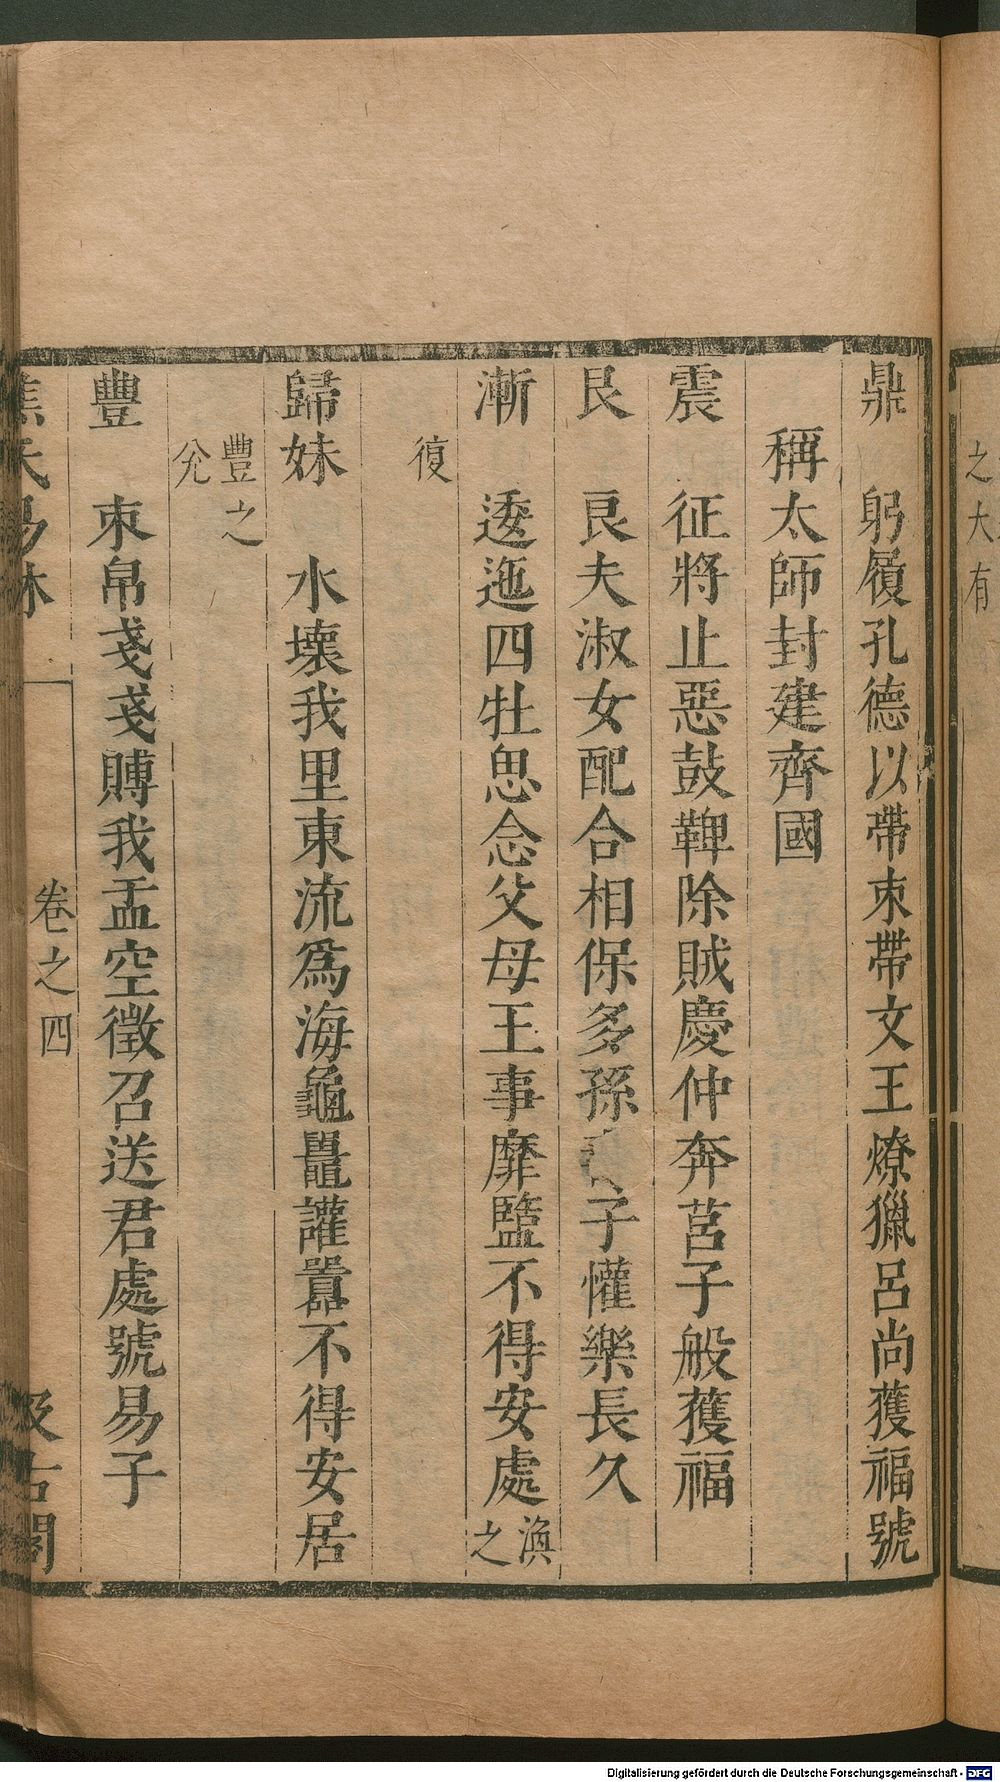 之大有
鼎 躬履孔德以帶束帶文王燎獵呂尚獲福號
稱太師封建齊國
震 征將止惡鼓鞞除賊慶仲奔莒子般獲福
艮 良夫淑女配合相保多孫子懽樂長久
漸 逶迤四牡思念父母王事靡盬不得安處渙之
復
歸妹 水壞我里東流為海龜鼉讙囂不得安居
豐之兊
豐 束帛戔戔賻我孟空徵召送君處號易子
焦氏易林 卷之四 汲古閣
Digitalisierung gefördert durch die Deutsche Forschungsgemeinschaft - DFG